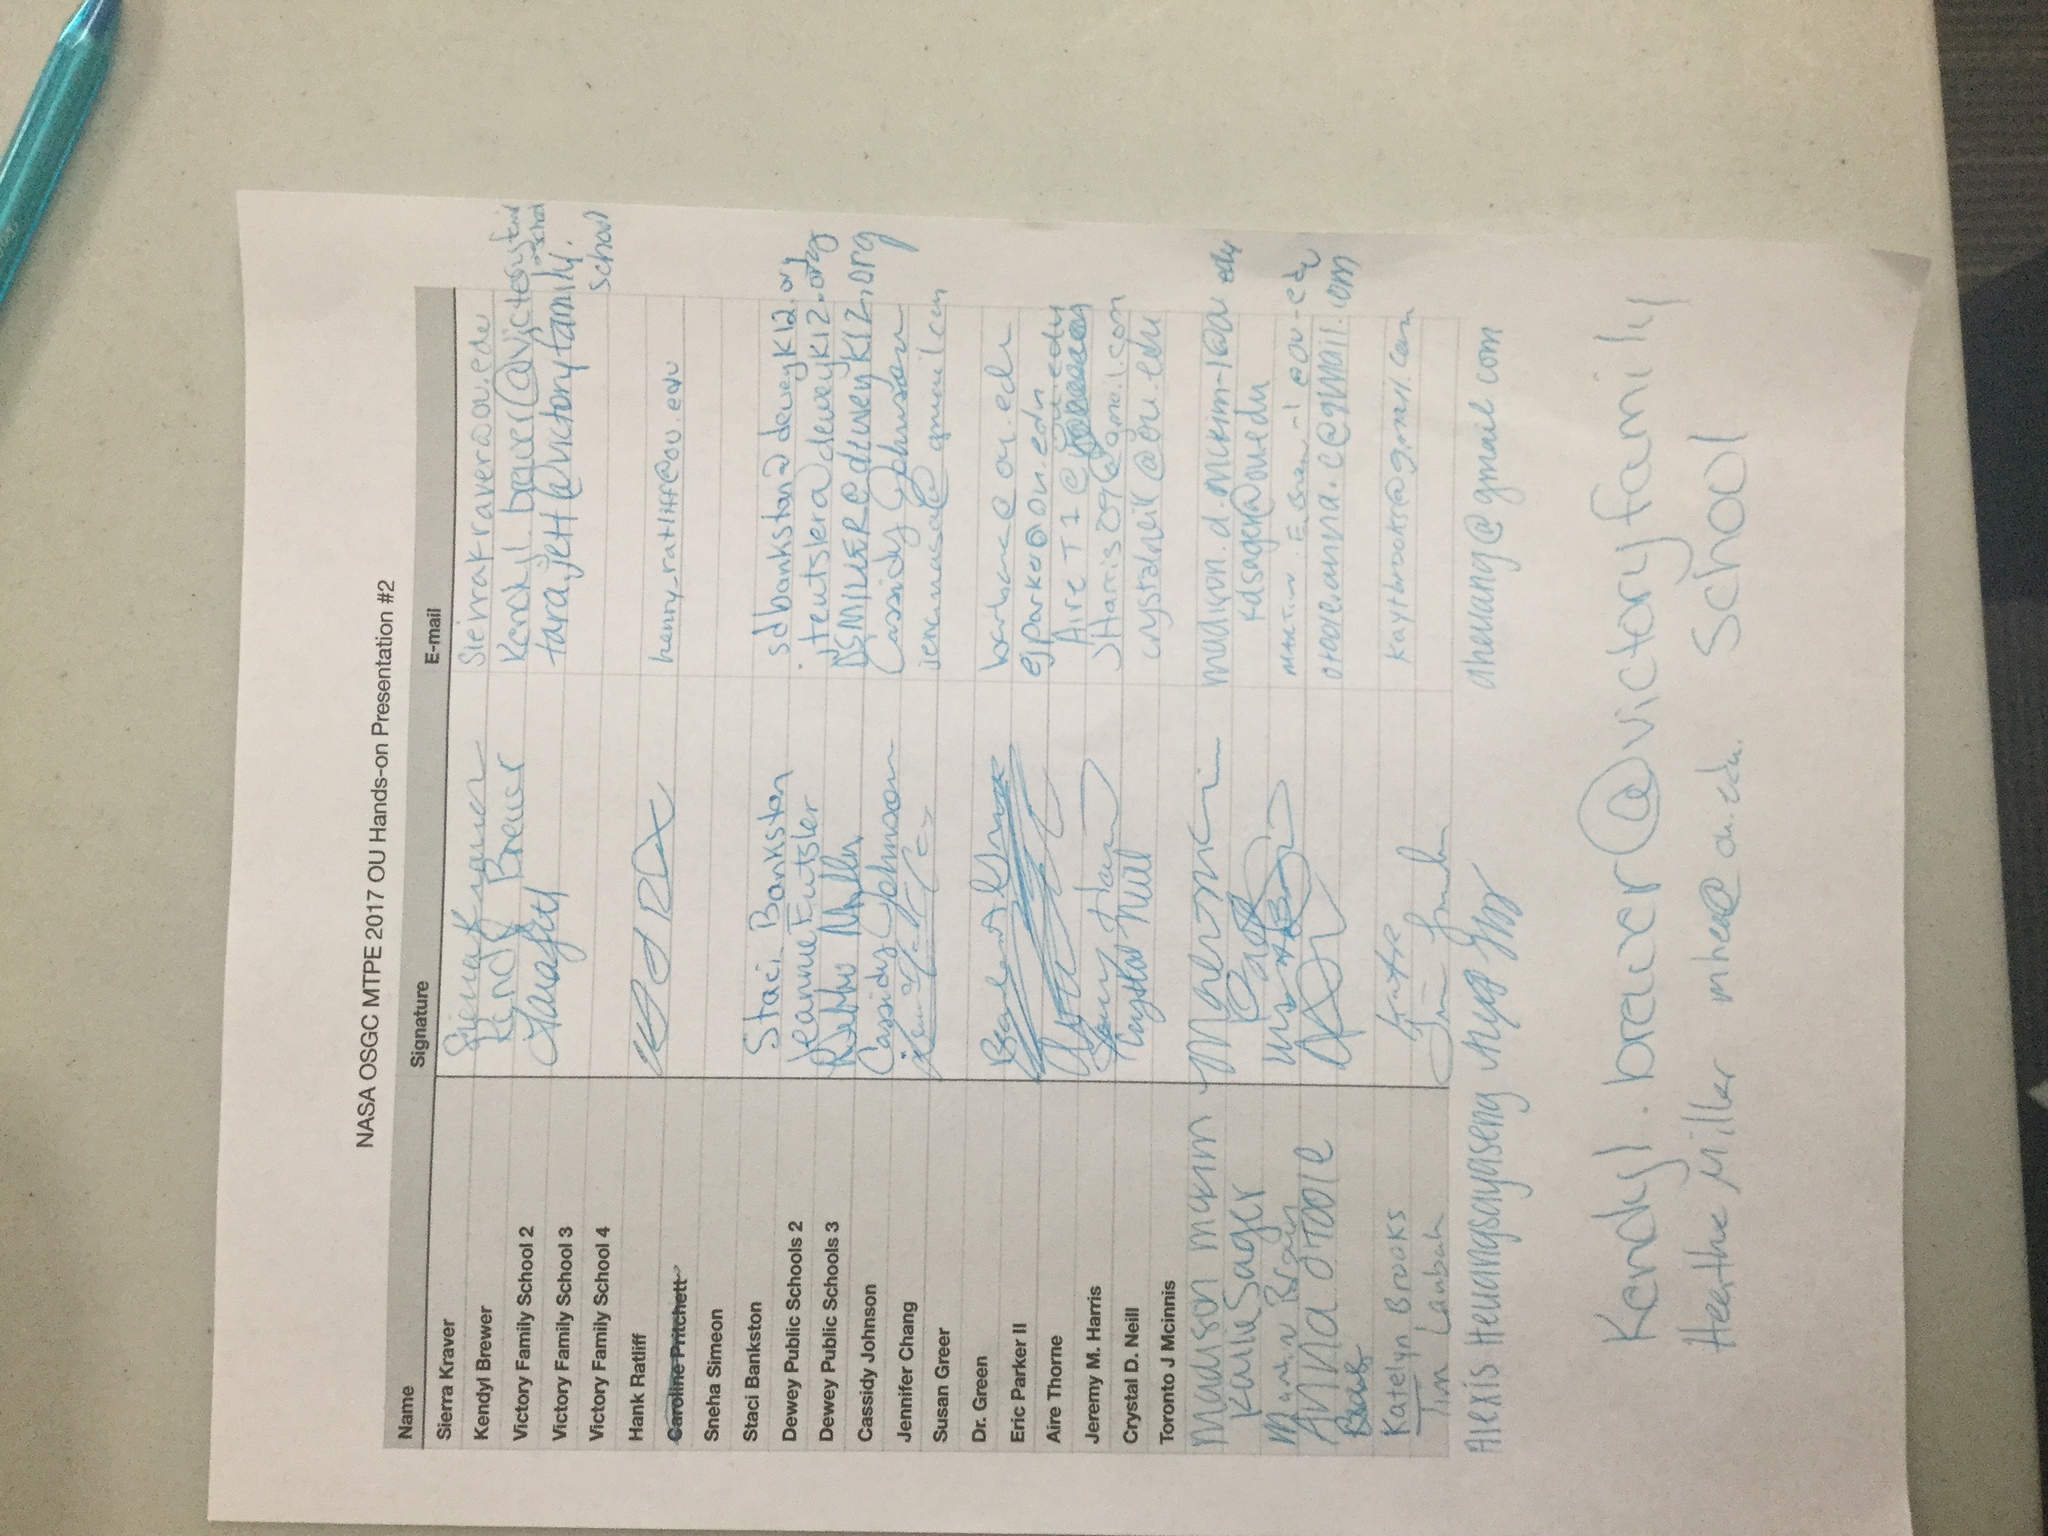 NASA OSGC MTPE 2017 OU Hands-on Presentation #2
Name Signature E-mail
Sierra Kraver sierrakraver@ou.edu
Kendyl Brewer Kendyl Brewer Kendyl.brewer@victory
Victory Family School 2 tara.jett@victoryfamily.
school
Victory Family School 3
Victory Family School 4
Hank Ratliff henry_ratliff@ou.edu
Caroline Pritchett
Sneha Simeon
Staci Bankston Staci Bankston sdbankston@deweyk12.org
Dewey Public Schools 2 Jeannie Eutsler jeutsler@deweyk12.org
Dewey Public Schools 3 DSMILLER@deweyk12.org
Cassidy Johnson Cassidy Johnson Cassidy Johnson
Jennifer Chang @gmail.com
Susan Greer
Dr. Green ou.edu
Eric Parker II ejparker@ou.edu
Aire Thorne
Jeremy M. Harris JHarris09@gmail.com
Crystal D. Neill Crystal Neill crystalneill@ou.edu
Toronto J Mcinnis
madison mckim madison.d.mckim-1@ou.edu
Kaylie Sager kdsager@ou.edu
Martin
Anna OToole otoole.anna.c@gmail.com
Katelyn Brooks kaytbrooks@gmail.com
Tim
Alexis Heuangsayaseng aheuang@gmail.com
Kendyl.brewer@victoryfamily
School
Heather Miller